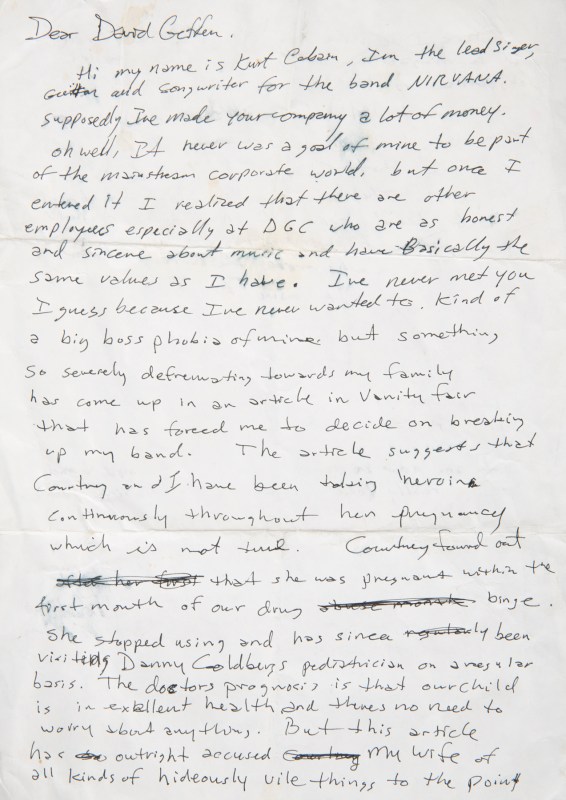 Dear David Geffen.
Hi my name is Kurt Cobain, Im the lead singer,
and songwriter for the band NIRVANA.
supposedly Ive made your company a lot of money.
oh well, It never was a goal of mine to be part
of the mainstream corporate world. but once I
entered it I realized that there are other
employees especially at DGC who are as honest
and sincere about music and have Basically the
same values as I have. Ive never met you
I guess because Ive never wanted to. Kind of
a big boss phobia of mine. but something
so severely towards my family
has come up in an article in Vanity fair
that has forced me to decide on breaking
up my band. The article suggests that
Courtney and I have been taking heroine
continuously throughout her pregnancy
which is not true. Courtney found out
after her first that she was pregnant within the
first month of our drug binge.
She stopped using and has since regularly been
visiting Danny Goldbergs pediatrician on a regular
basis. The doctors prognosis is that our child
is in excellent health and theres no need to
worry about anything. But this article
has outright accused Courtney My wife of
all kinds of hideously vile things to the point